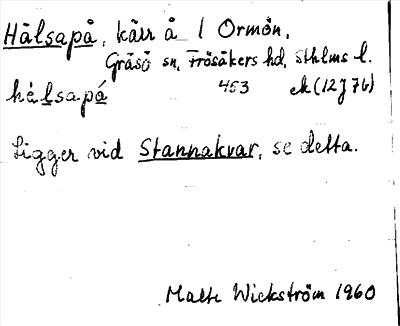 Hälsapå, kärr å l Ormön,
Gräsö sn, Frösåkers hd, Sthlms l.
453 ek (12J7b)
hèḷsapá
Ligger vid Stannakvar, se detta.
Malte Wickström 1960